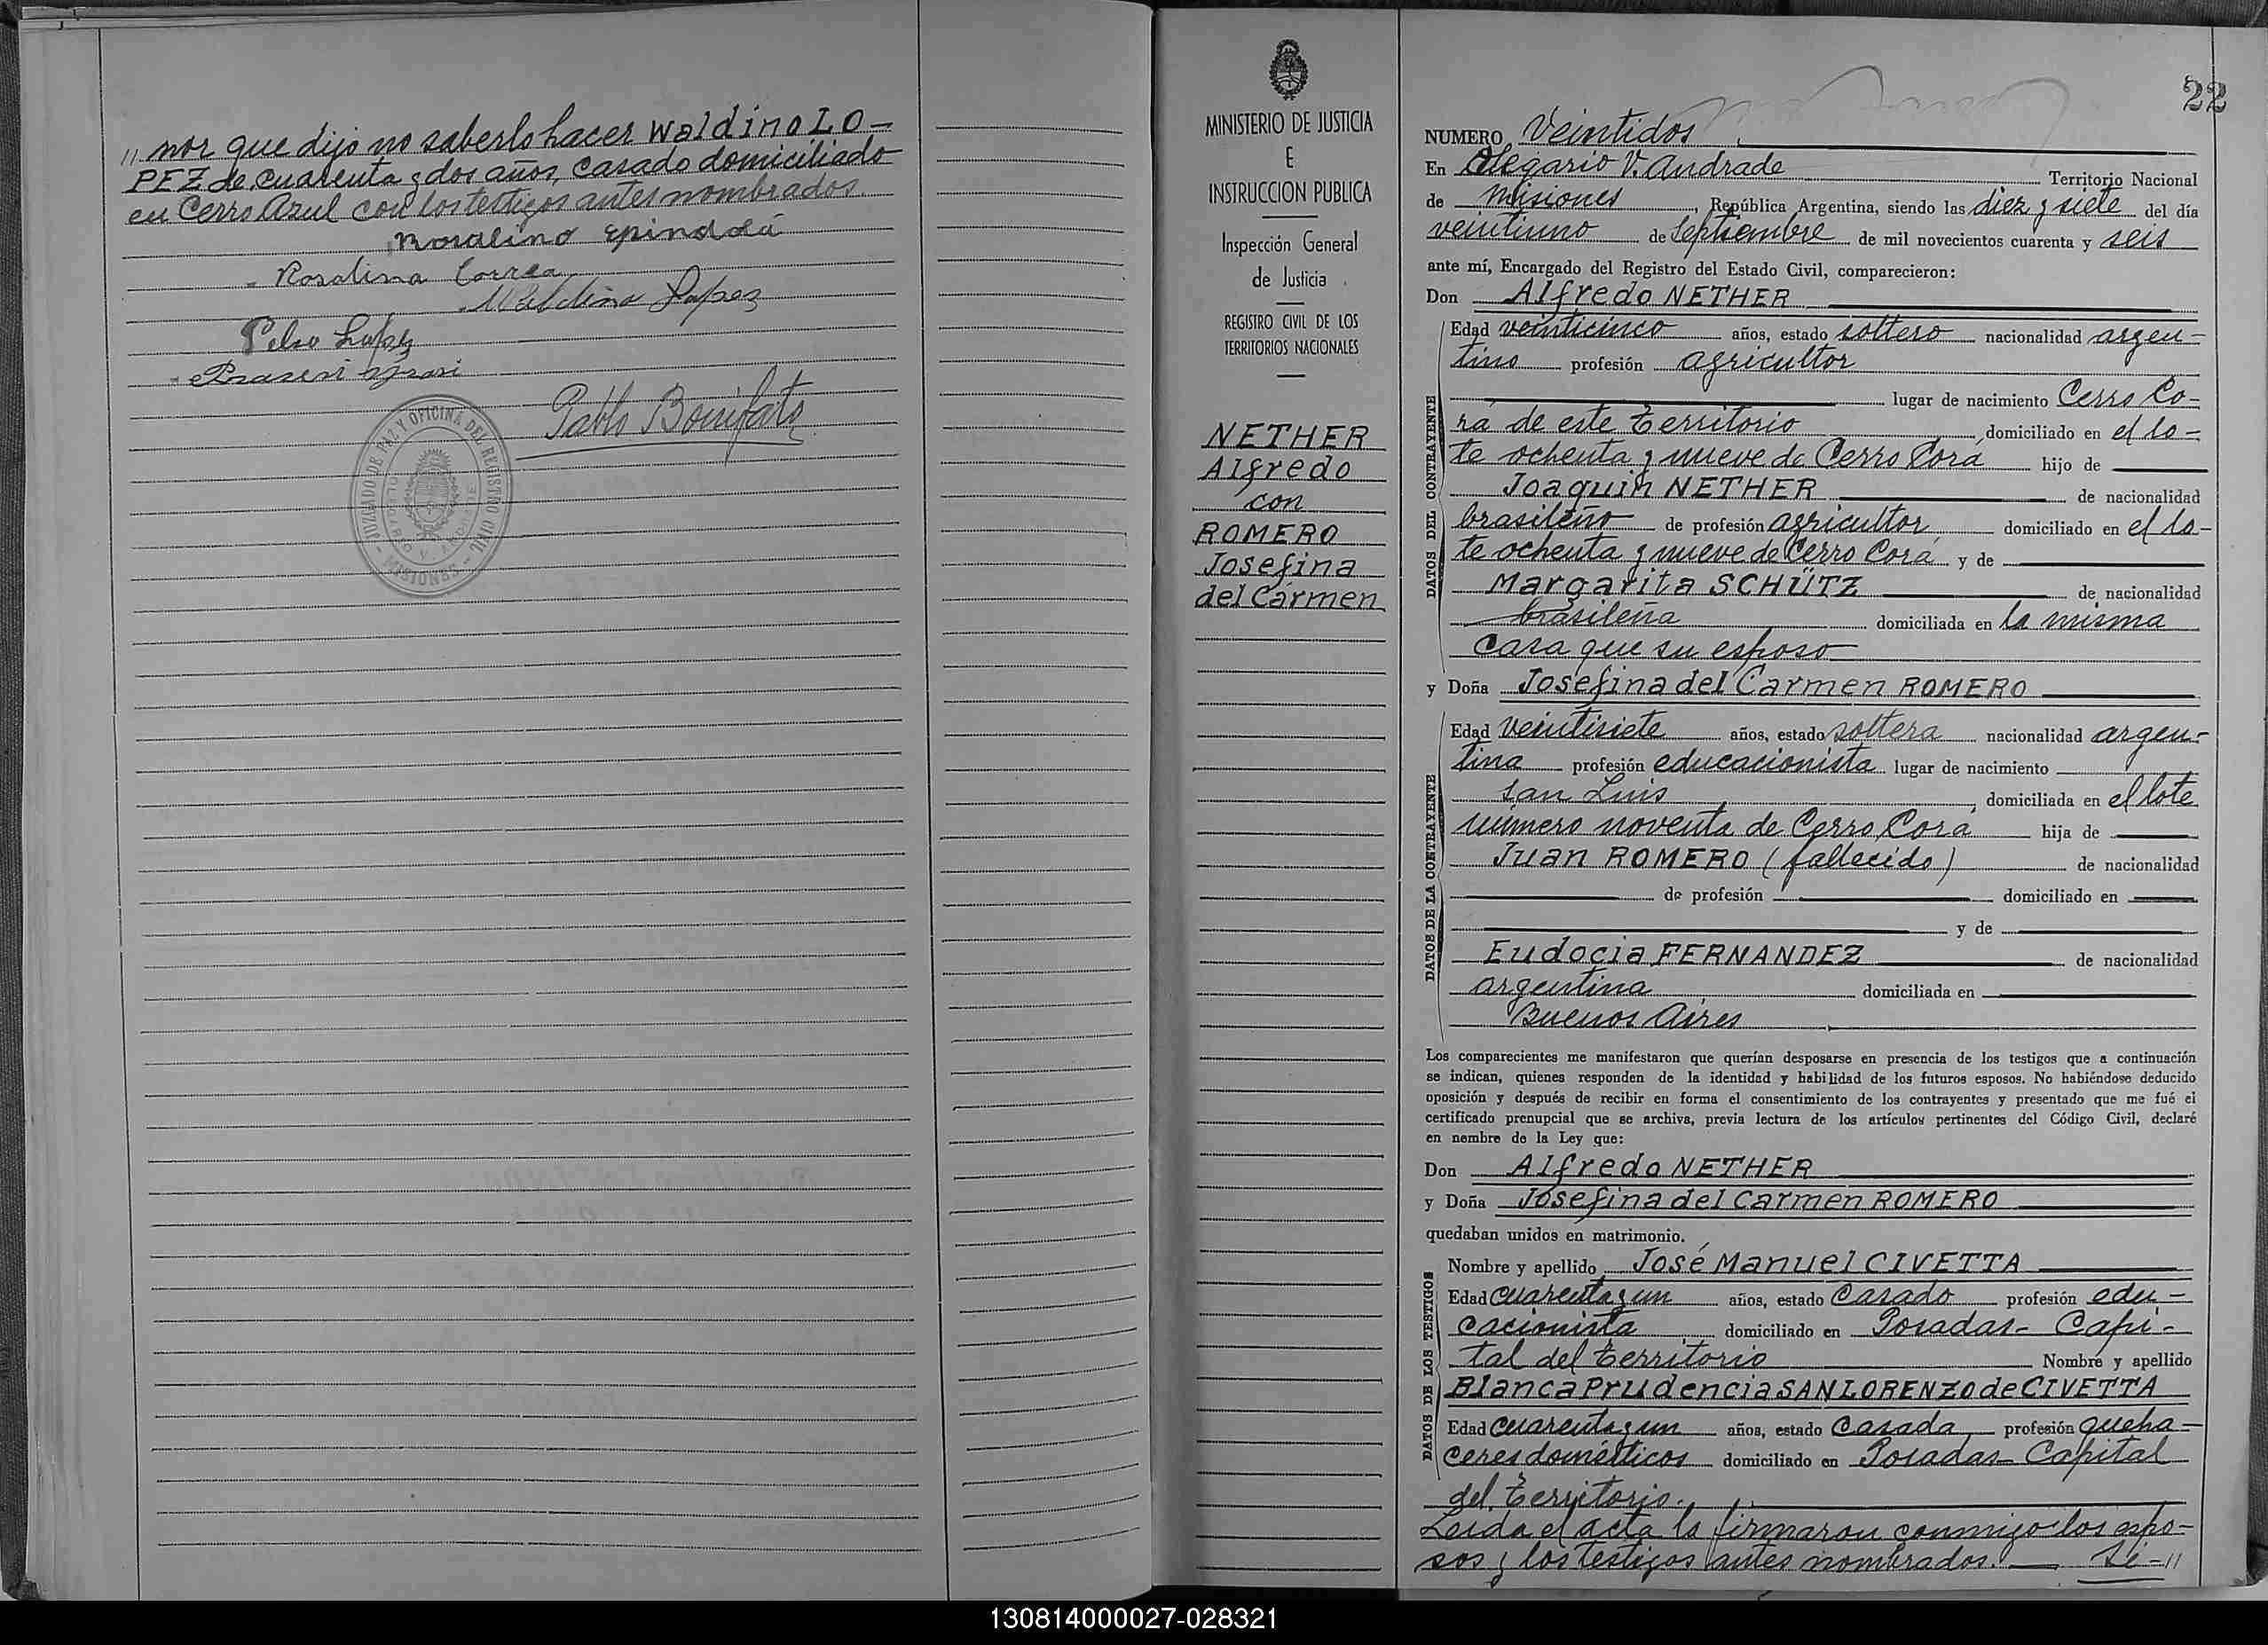 " nor que dijo no saberlo hacer Waldino LO-
PEZ de cuarenta y dos años, casado domiciliado
en Cerro Azul con los testigos antes nombrados.
Rosalino Espindola
Rosalina Correa
Waldino Lopez
Pablo Bonifato
JUZGADO DE PAZ Y OFICINA DEL REGISTRO CIVIL
OLEGARIO V. ANDRADE
- MISIONES -
MINISTERIO DE JUSTICIA
E
INSTRUCCION PUBLICA
Inspección General
de Justicia
REGISTRO CIVIL DE LOS
TERRITORIOS NACIONALES
NETHER
Alfredo
con
ROMERO
Josefina
del Cármen
22
NUMERO Veintidos
En Olegario V. Andrade Territorio Nacional
de Misiones, República Argentina, siendo las diez y siete del día
veintiuno de Septiembre de mil novecientos cuarenta y seis
ante mí, Encargado del Registro del Estado Civil, comparecieron:
Don Alfredo NETHER
DATOS DEL CONTRAYENTE
Edad veinticinco años, estado soltero nacionalidad argen-
tino profesión agricultor
lugar de nacimiento Cerro Co-
rá de este Territorio domiciliado en el lo-
te ochenta y nueve de Cerro Corá hijo de
Joaquin NETHER de nacionalidad
brasileño de profesión agricultor domiciliado en el lo-
te ochenta y nueve de Cerro Corá y de
Margarita SCHÜTZ de nacionalidad
brasileña domiciliada en la misma
casa que su esposo
y Doña Josefina del Carmen ROMERO
DATOS DE LA CONTRAYENTE
Edad veintisiete años, estado soltera nacionalidad argen-
tina profesión educacionista lugar de nacimiento
San Luis, domiciliada en el lote
número noventa de Cerro Corá hija de
Juan ROMERO (fallecido) de nacionalidad
de profesión domiciliado en
y de
Eudocia FERNANDEZ de nacionalidad
argentina domiciliada en
Buenos Aires
Los comparecientes me manifestaron que querían desposarse en presencia de los testigos que a continuación
se indican, quienes responden de la identidad y habilidad de los futuros esposos. No habiéndose deducido
oposición y después de recibir en forma el consentimiento de los contrayentes y presentado que me fué el
certificado prenupcial que se archiva, previa lectura de los artículos pertinentes del Código Civil, declaré
en nombre de la Ley que:
Don Alfredo NETHER
y Doña Josefina del Carmen ROMERO
quedaban unidos en matrimonio.
DATOS DE LOS TESTIGOS
Nombre y apellido José Manuel CIVETTA
Edad cuarenta y un años, estado casado profesión edu-
cacionista domiciliado en Posadas - Capi-
tal del Territorio Nombre y apellido
Blanca Prudencia SAN LORENZO de CIVETTA
Edad cuarenta y un años, estado casada profesión queha-
ceres domésticos domiciliado en Posadas - Capital
del Territorio.
Leida el acta la firmaron conmigo los espo-
sos y los testigos antes nombrados. Si-"
130814000027-028321